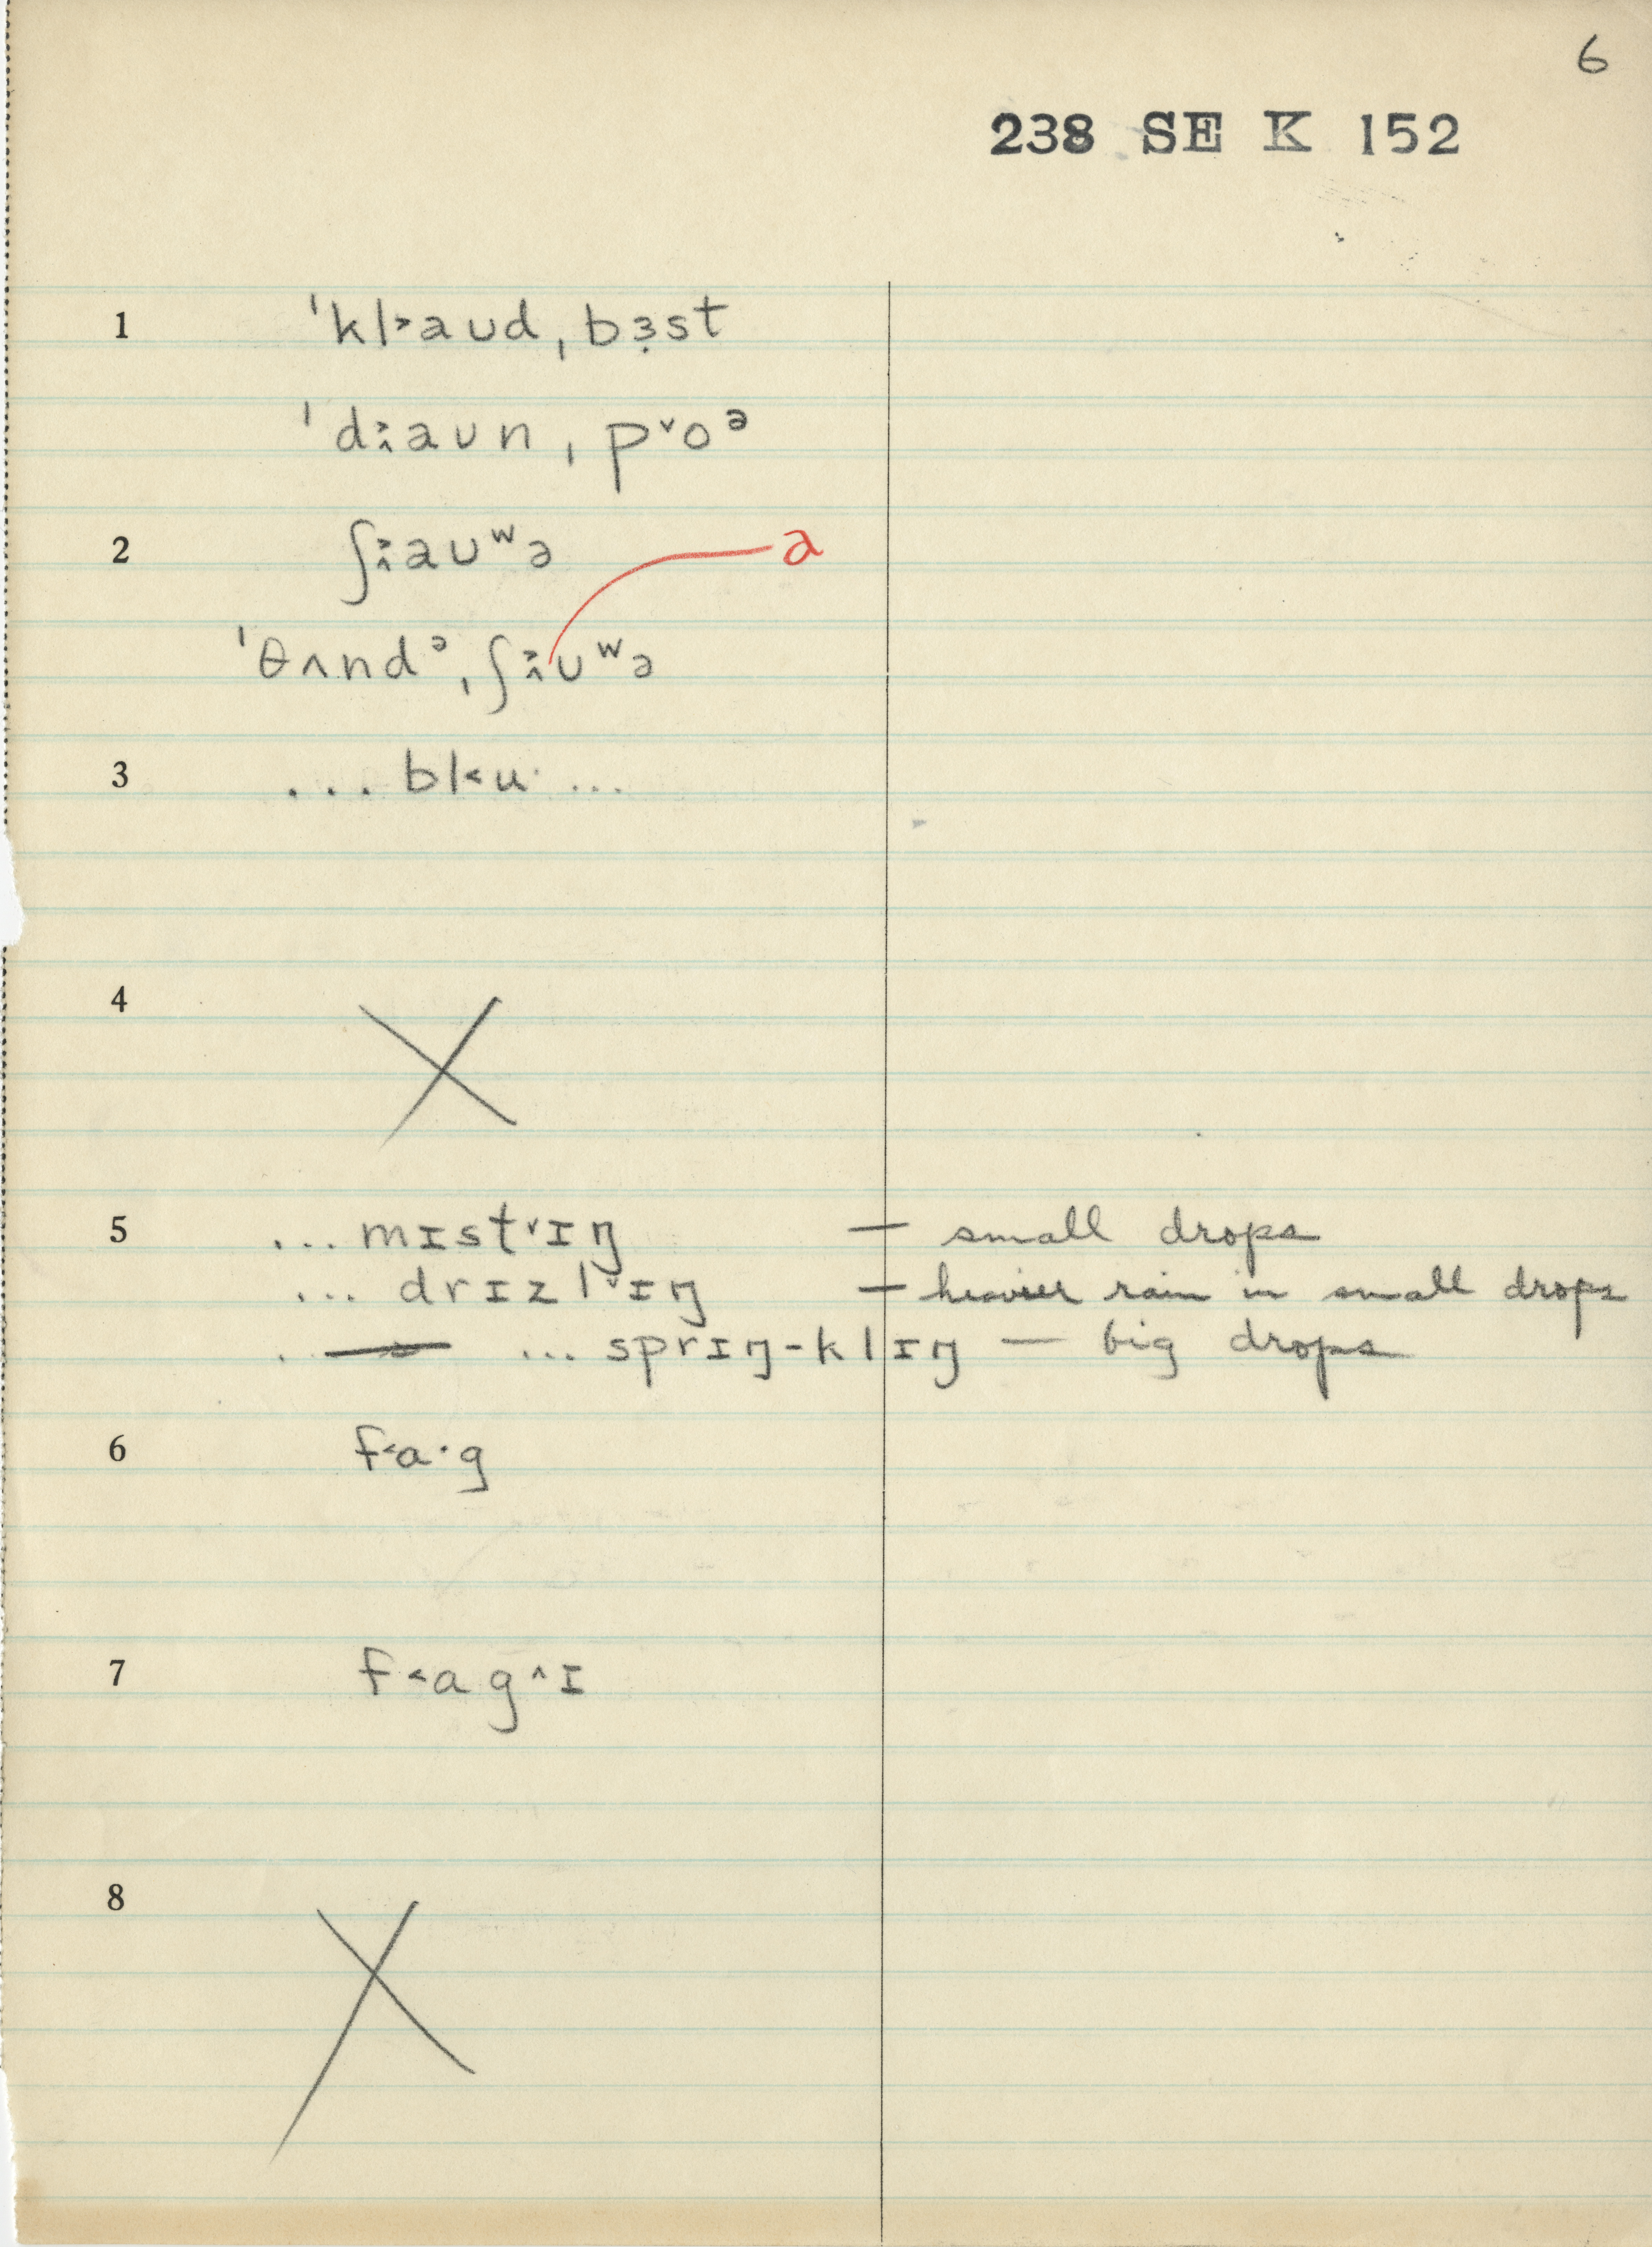 6
238 SE K 152
1 ˈkl˃aʊdˌbɜ̣st
ˈd˃˄aʊnˌp˅oᵊ
2 ʃ˃˄aʊʷə
a
ˈθʌndᵊˌʃ˃˄ʊʷə
3 ... bl˂u· ...
4
5 ... mɪst˅ɪŋ — small drops
... drɪzl˅ɪŋ — heavier rain in small drops
... sprɪŋ-klɪŋ — big drops
6 f˂ɑ·g
7 f˂ɑg˄ɪ
8